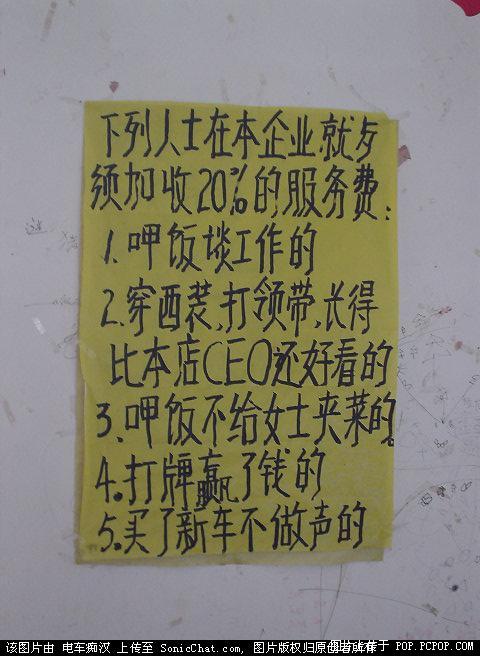 下列人士在本企业就歺
须加收20%的服务费:
1.呷饭谈工作的
2.穿西装,打领带,长得
比本店CEO还好看的
3、呷饭不给女士夹菜的。
4.打牌赢了钱的
5.买了新车不做声的
该图片由 电车痴汉 上传至 SonicChat.com, 图片版权归原创者所有
图片上传于 POP.PCPOP.COM